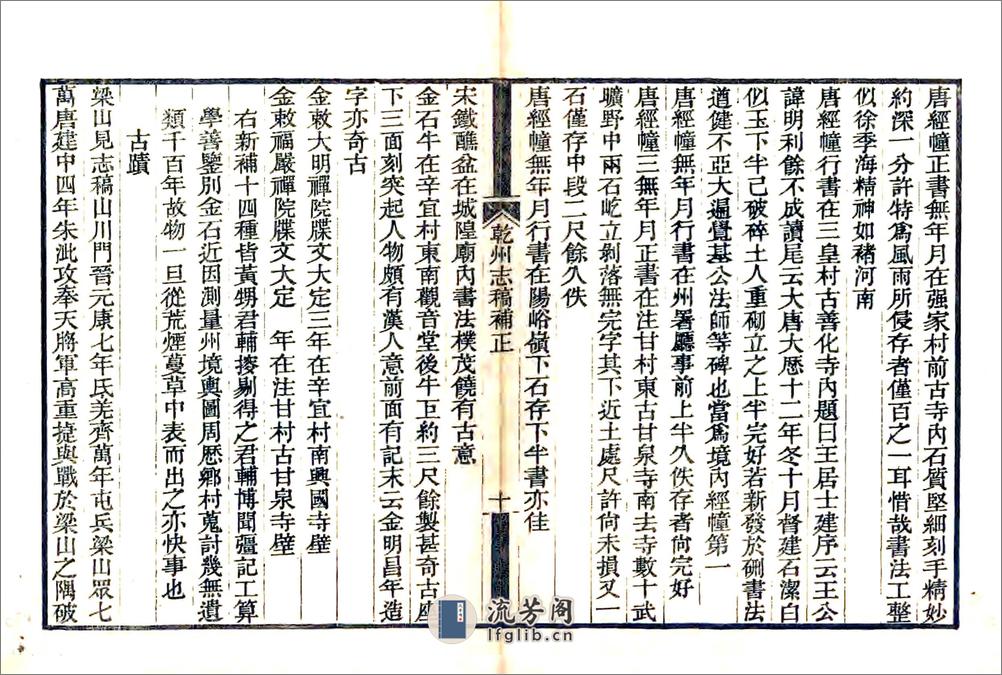 唐經幢正書無年月在强家村前古寺內石質堅細刻手精妙
約深一分許特爲風雨所侵存者僅百之一耳惜哉書法工整
似徐季海精神如豬河南
唐經幢行書在三皇村古善化寺內題曰王居士建序云王公
諱明利餘不成讀尾云大唐大歷十二年冬十月督建石潔白
似玉下半已破碎土人重砌立之上半完好若新發於硎書法
遒健不亞大遍覺基公法師等碑也當爲境內經幢第一
唐經幢無年月行書在州署廳事前上半久佚存者尙完好
唐經幢三無年月正書在注甘村東古甘泉寺南去寺數十武
曠野中兩石屹立剝落無完字其下近土處尺許尙未損又一
石僅存中段二尺餘久佚
唐經幢無年月行書在陽峪嶺下石存下半書亦佳
乾州志稿補正
十
宋鐵醮盆在城隍廟內書法樸茂饒有古意
金石牛在辛宜村東南觀音堂後牛巨約三尺餘製甚奇古座
下三面刻突起人物頗有漢人意前面有記末云金明昌年造
字亦奇古
金敕大明禪院牒文大定三年在辛宜村南興國寺壁
金敕福嚴禪院牒文大定 年在注甘村古甘泉寺壁
右新補十四種皆黃甥君輔搜剔得之君輔博聞疆記工算
學善鑒別金石近因測量州境輿圖周歷鄉村蒐討幾無遺
類千百年故物一旦從荒煙蔓草中表而出之亦快事也
古蹟
梁山見志稿山川門晉元康七年氐羌齊萬年屯兵梁山眾七
萬唐建中四年朱泚攻奉天將軍高重捷與戰於梁山之隅破
流芳阁
lfglib.cn